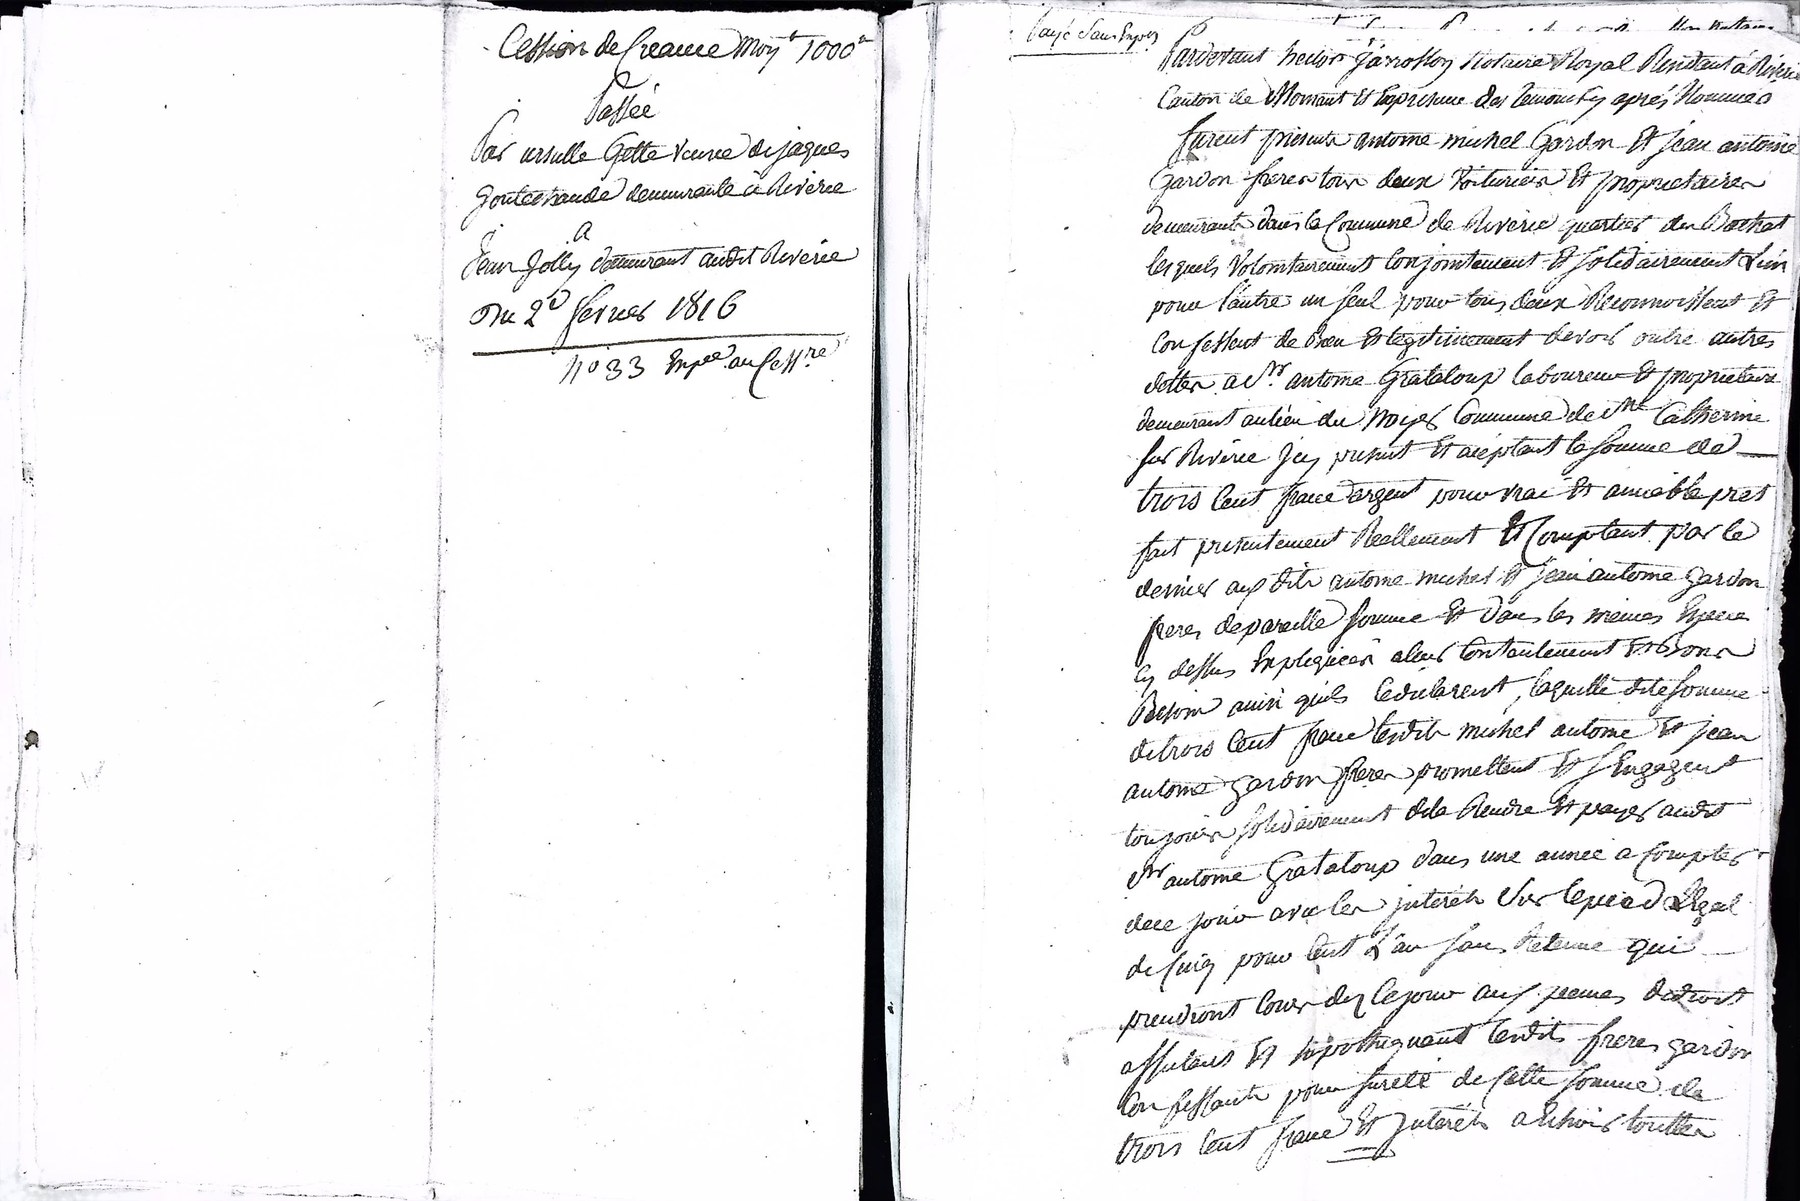 Cession de Creance Moy.t 1000 f
Passée
Par ursulle Gette veuve de jaques
Goutechaude demeurante à Riverie
A
Jean Jolly demeurant audit Riverie
Du 2.d fevrier 1816
N.o 33 Exp.ée au Cess.re
Payé sans Exp.on
Pardevant hector Jarrosson Notaire Royal Residant à Riverie
Canton de Mornant Et Enpresence des temoins Cy après Nommés
furent présents antoine michel Gardon Et jean antoine
Gardon freres tous deux Voituriers Et proprietaires
demeurants dans la Commune de Riverie quartier du Bochat
lesquels Volontairement Conjointement Et solidairement L'un
pour l'autre un seul pour tous deux Reconnoissent Et
Confessent de bien Et legitimement devoir outre autres
dettes a S.r antoine Grataloup laboureur Et proprietaire
demeurant au lieu du Noyer Commune de S.te Catherine
sur Riverie Icy present Et aceptant la somme de
trois Cent franc d'argent pour vrai Et amiable pret
fait presentement Reellement Et Comptant par le
dernier aux dits antoine michel Et jean antoine Gardon
freres de pareille somme Et dans les mêmes Especes
Cy dessus Expliquées a leur Contentement Et bons
Besoin ainsi quils le declarent, laquelle dite somme
de trois Cent franc lesdits michel antoine Et jean
antoine Gardon freres promettent Et s'Engagent
toujours solidairement de la Rendre Et payer audit
S.r antoine Grataloup dans une année a Compter
de ce jour avec les interets sur le pied Légal
de Cinq pour Cent L'an sans Retenue qui
prendront Cours dez Ce jour aux peines de droit
affectant Et hipothequant lesdits freres Gardon
Confessants pour sureté de Cette somme de
trois Cent franc Et Interets a Echoir touttes